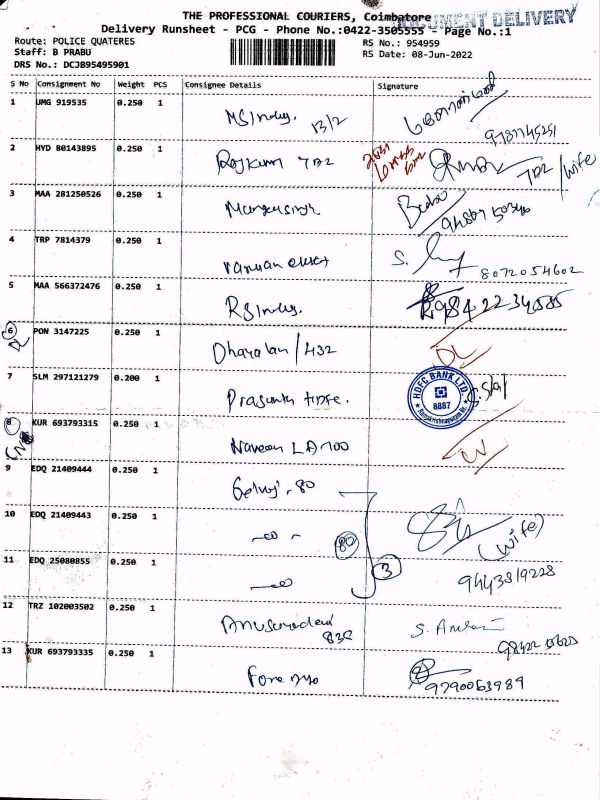 THE PROFESSIONAL COURIERS, Coimbatore
DOCUMENT DELIVERY
Delivery Runsheet - PCG - Phone No.:0422-3505555 - Page No.:1
Route: POLICE QUATERES
Staff: B PRABU
DRS No.: DCJB95495901
RS No.: 954959
RS Date: 08-Jun-2022
S No Consignment No Weight PCS Consignee Details Signature
1 UMG 919535 0.250 1 MS Indus. 13/2
2 HYD 80143895 0.250 1 Rajkumar 702 702/wife
3 MAA 281250526 0.250 1 Babu
4 TRP 7814379 0.250 1 S. 8072054602
5 MAA 566372476 0.250 1 RS Indus. 9842234585
6 PON 3147225 0.250 1 Dharalan/432 DL
DL
7 SLM 297121279 0.200 1 Prasanth HDFC BANK LTD 8887
8 KUR 693793315 0.250 1 Naveen LA 700
9 EDQ 21409444 0.250 1 Selvaj. 80
10 EDQ 21409443 0.250 1 80 (Wife)
11 EDQ 25080855 0.250 1 3 9443819228
12 TRZ 102003502 0.250 1 Anusuyadevi S.
13 KUR 693793335 0.250 1 9790063989